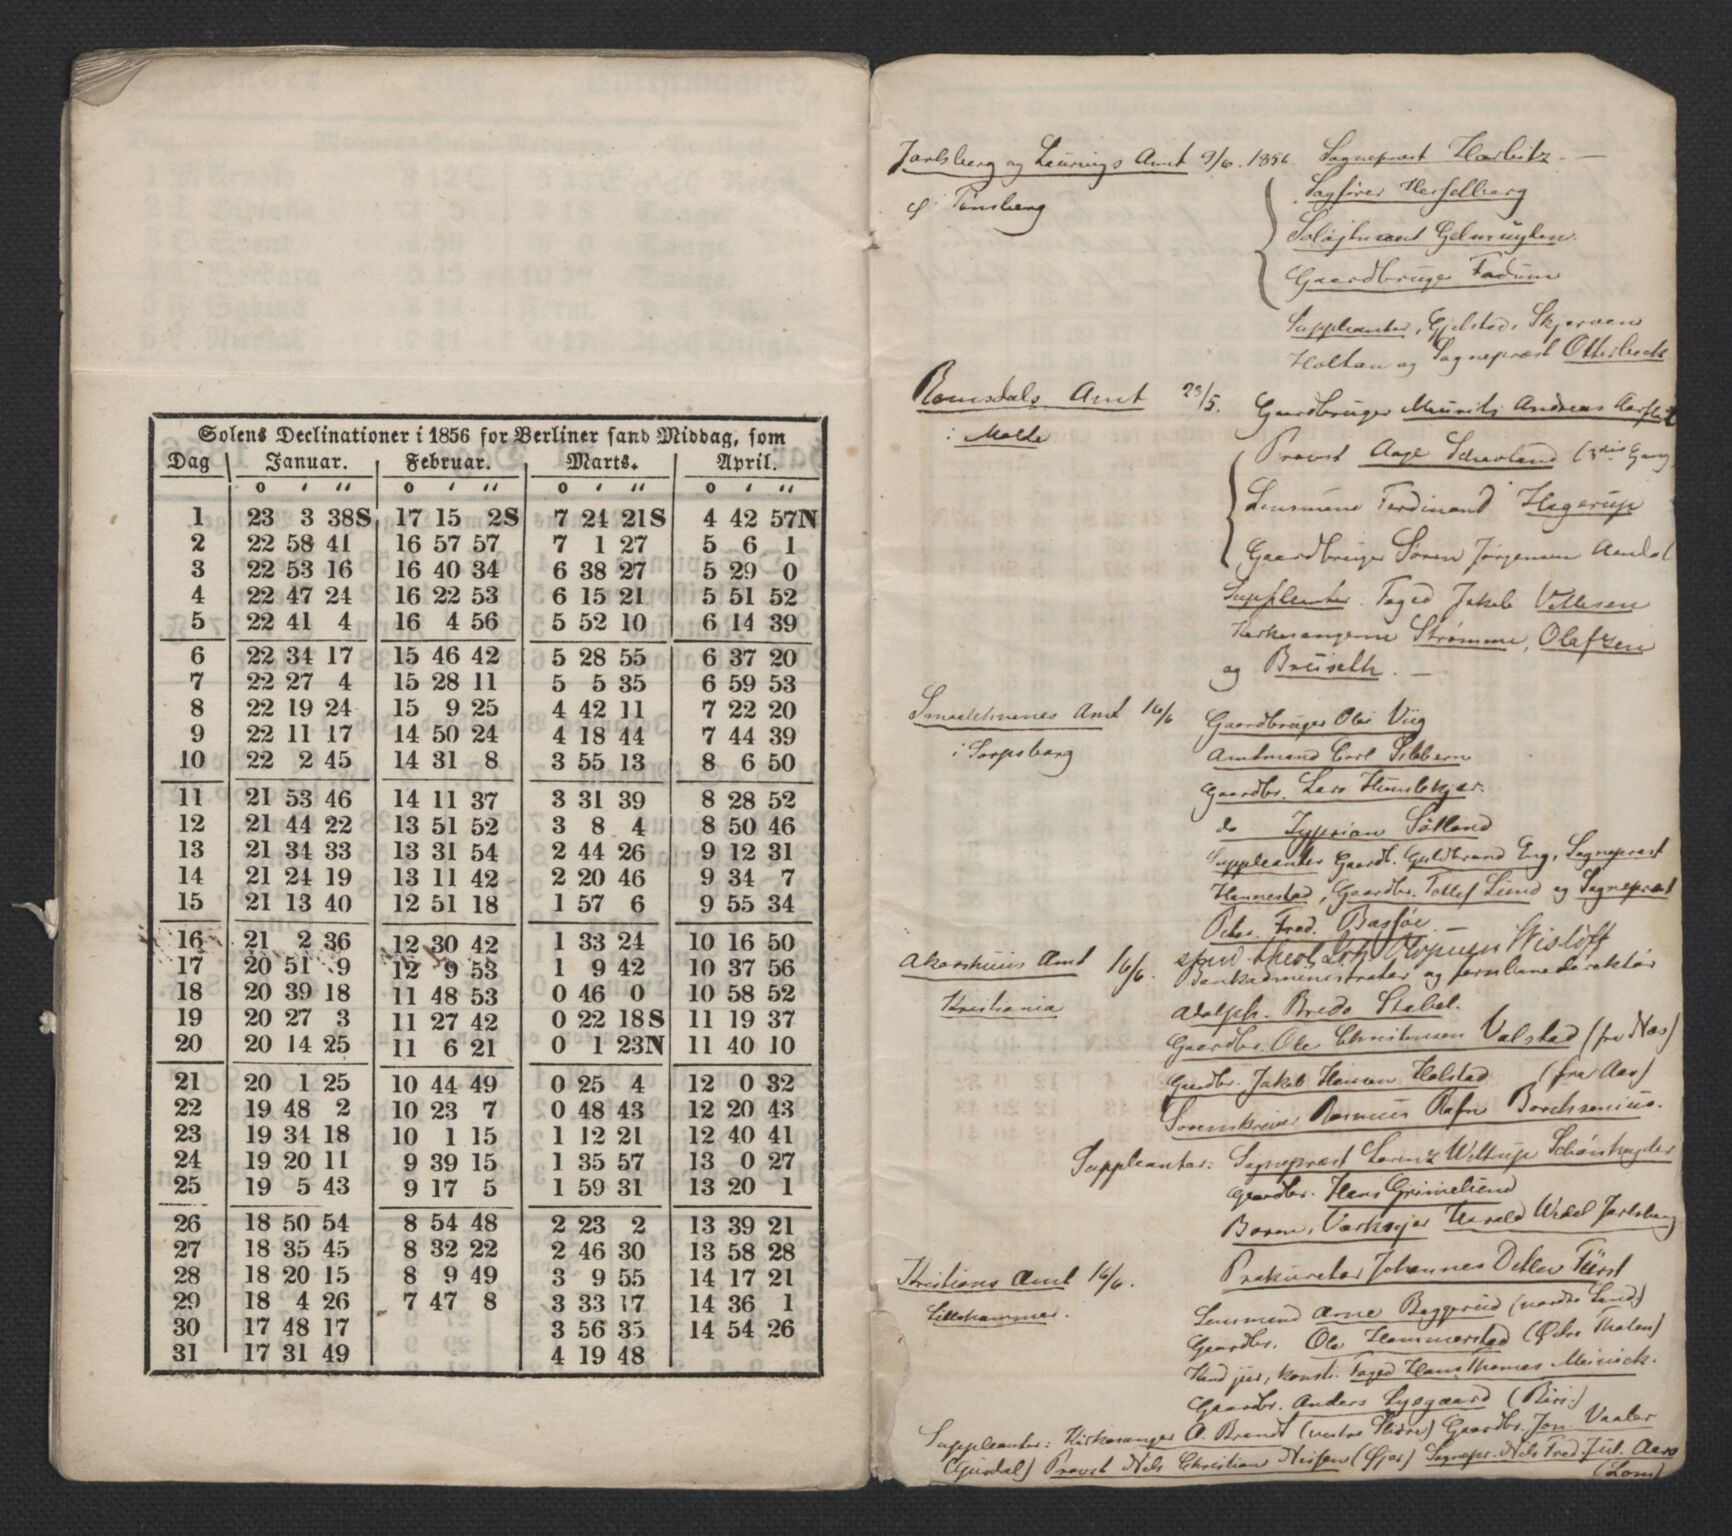 Solens Declinationer i 1856 for Berliner sand Middag, som
Dag Januar. Februar. Marts. April.
o ' '' o ' '' o ' '' o ' ''
1 23 3 38S 17 15 2S 7 24 21S 4 42 57N
2 22 58 41 16 57 57 7 1 27 5 6 1
3 22 53 16 16 40 34 6 38 27 5 29 0
4 22 47 24 16 22 53 6 15 21 5 51 52
5 22 41 4 16 4 56 5 52 10 6 14 39
6 22 34 17 15 46 42 5 28 55 6 37 20
7 22 27 4 15 28 11 5 5 35 6 59 53
8 22 19 24 15 9 25 4 42 11 7 22 20
9 22 11 17 14 50 24 4 18 44 7 44 39
10 22 2 45 14 31 8 3 55 13 8 6 50
11 21 53 46 14 11 37 3 31 39 8 28 52
12 21 44 22 13 51 52 3 8 4 8 50 46
13 21 34 33 13 31 54 2 44 26 9 12 31
14 21 24 19 13 11 42 2 20 46 9 34 7
15 21 13 40 12 51 18 1 57 6 9 55 34
16 21 2 36 12 30 42 1 33 24 10 16 50
17 20 51 9 12 9 53 1 9 42 10 37 56
18 20 39 18 11 48 53 0 46 0 10 58 52
19 20 27 3 11 27 42 0 22 18S 11 19 37
20 20 14 25 11 6 21 0 1 23N 11 40 10
21 20 1 25 10 44 49 0 25 4 12 0 32
22 19 48 2 10 23 7 0 48 43 12 20 43
23 19 34 18 10 1 15 1 12 21 12 40 41
24 19 20 11 9 39 15 1 35 57 13 0 27
25 19 5 43 9 17 5 1 59 31 13 20 1
26 18 50 54 8 54 48 2 23 2 13 39 21
27 18 35 45 8 32 22 2 46 30 13 58 28
28 18 20 15 8 9 49 3 9 55 14 17 21
29 18 4 26 7 47 8 3 33 17 14 36 1
30 17 48 17 3 56 35 14 54 26
31 17 31 49 4 19 48
Jarlsberg og Laurvigs Amt 9/6. 1856. Sogneprest Harbitz. —
i Tønsberg Sagfører Hesselberg
Gaardbruger Fadum
Suppleanter, Gjelstad, Skjerven
Holtan og Sogneprest Otterbeck
Romsdals Amt 23/5. Gaardbruger Mauritz Andreas Aarflot
i Molde Provst Aage Schavland
Lensmand Ferdinand Hagerup
Gaardbruger Søren Jørgensen Aandal
Suppleanter. Foged Jakob Vettesen
Kirkesangerne Strømme, Olafsen
og Brüseth. —
Smaalehnenes Amt 16/6 Gaardbruger Ole Viig
i Sarpsborg Amtmand Carl Sibbern
Gaardbr. Lars Hunskjær.
do Zyprian Sötland
Suppleanter Gaardb. Guldbrand Eng, Sogneprest
Hannestad, Gaardbr. Tollef Lund og Sogneprest
Peter Fred. Bassøe.
Akershuus Amt 16/6. Wisløff
Kristiania Bankadministrator og jernbanedirektør
Adolph. Bredo Stabel.
Gaardbr. Ole Christensen Valstad (fra Næs)
Gaardbr. Jakob Hansen Holstad (fra Aas)
Sorenskriver Rasmus Rafn Borchsenius.
Suppleanter: Sogneprest Lorenz Wittrup Schønheyder
Gaardbr. Hans Grimelund
Baron, Værkseier Harald Wedel Jarlsberg
Prokurator Johannes Detlev Fürst
Kristians Amt 16/6. Lensmand Arne Baggerud (nordre Land)
Lillehammer. Gaardbr. Ole Hammerstad (Østre Thoten)
Kand jur, konst. Foged Hans Thomas Meinick.
Gaardbr. Anders Lysgaard (Biri)
Suppleanter: Kirkesanger O. Brandt (vestre Slidre) Gaardbr. Jon Vaaler
(Gusdal) Provst Nils Christian Nissen (Øier) Sognepr. Nils Fred. Jul. Aars
(Lom)